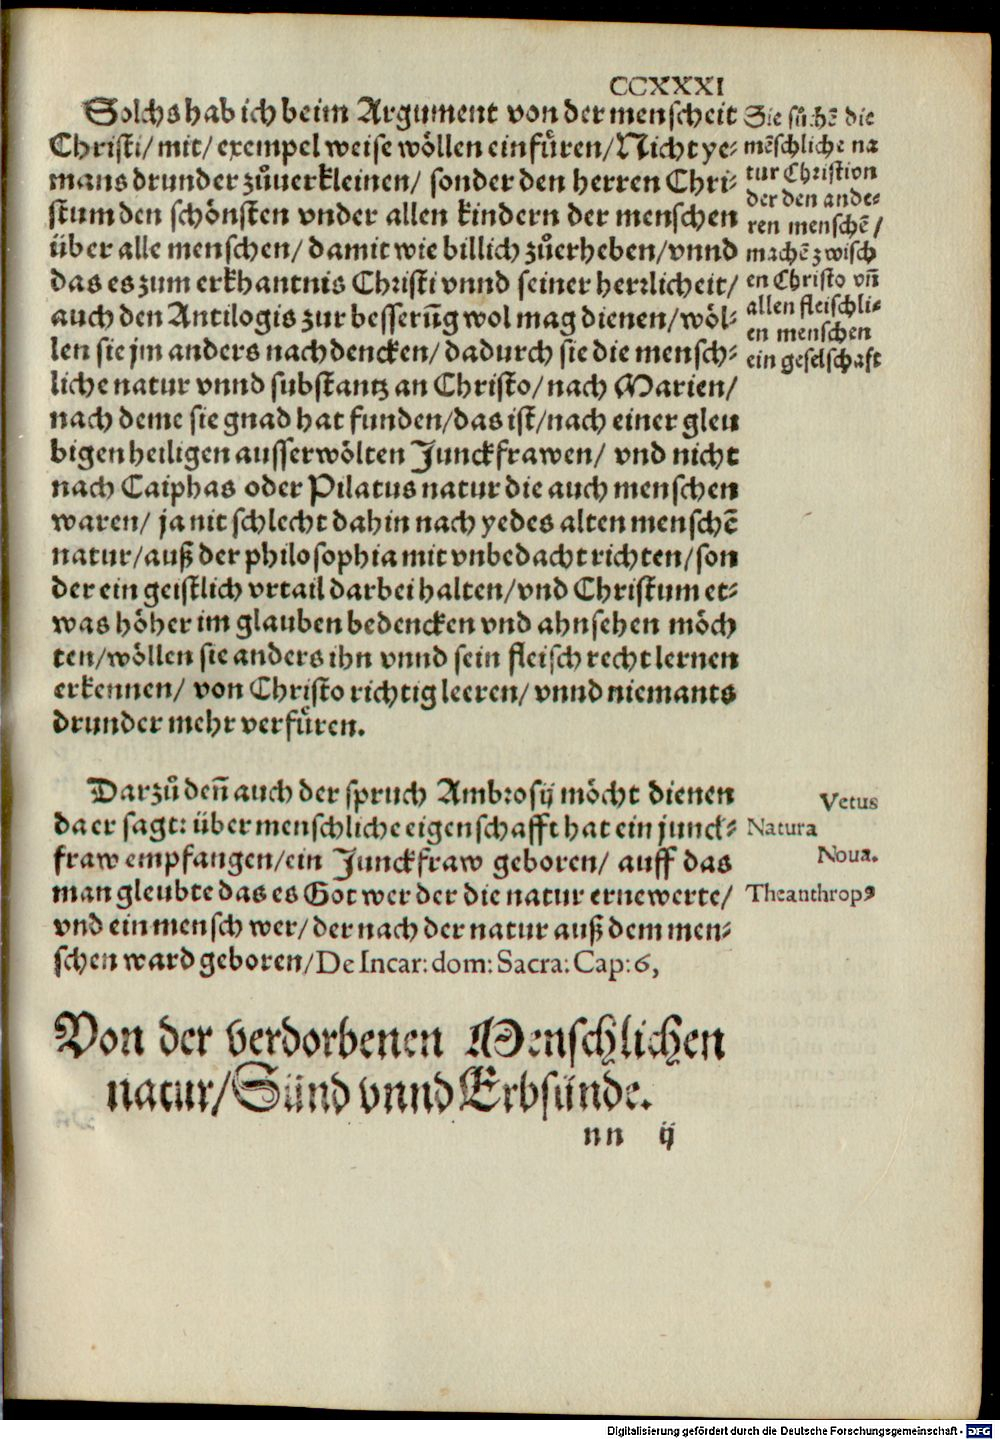 CCXXXI
Solchs hab ich beim Argument von der menscheit
Christi/ mit/ exempel weise wöllen einfůren/ Nicht ye⸗
mans drunder zůuerkleinen/ sonder den herren Chri⸗
stum den schönsten vnder allen kindern der menschen
über alle menschen/ damit wie billich zůerheben/ vnnd
das es zum erkhantnis Christi vnnd seiner herrlicheit/
auch den Antilogis zur besserũg wol mag dienen/ wöl⸗
len sie jm anders nach dencken/ dadurch sie die mensch⸗
liche natur vnnd substantz an Christo/ nach Marien/
nach deme sie gnad hat funden/ das ist/ nach einer gleu
bigen heiligen ausserwölten Junckfrawen/ vnd nicht
nach Caiphas oder Pilatus natur die auch menschen
waren/ ja nit schlecht dahin nach yedes alten menschẽ
natur/ auß der philosophia mit vnbedacht richten/ son
der ein geistlich vrtail darbei halten/ vnd Christum et⸗
was höher im glauben bedencken vnd ahnsehen möch
ten/ wöllen sie anders ihn vnnd sein fleisch recht lernen
erkennen/ von Christo richtig leeren/ vnnd niemants
drunder mehr verfůren.
Sie sůchẽ die
mẽschliche na
tur Christi on
der den ande⸗
ren menschẽ/
machẽ zwisch
en Christo vñ
allen fleischli⸗
en menschen
ein geselschaft
Darzů deñ auch der spruch Ambrosij möcht dienen
da er sagt: über menschliche eigenschafft hat ein junck⸗
fraw empfangen/ ein Junckfraw geboren/ auff das
man gleubte das es Got wer der die natur ernewerte/
vnd ein mensch wer/ der nach der natur auß dem men⸗
schen ward geboren/ De Incar: dom: Sacra: Cap: 6,
Vetus
Natura
Noua.
Theanthropꝰ
Von der verdorbenen Menschlichen
natur/ Sünd vnnd Erbsünde.
nn ij
Digitalisierung gefördert durch die Deutsche Forschungsgemeinschaft - DFG